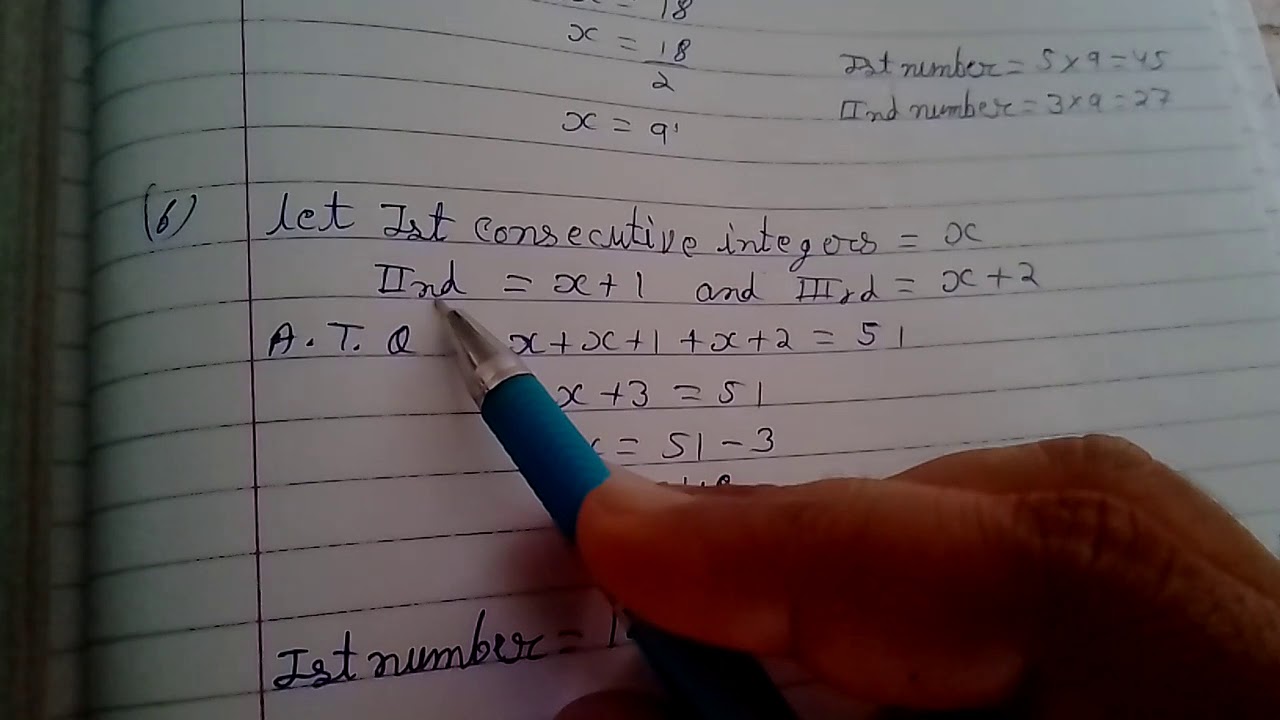 = 18
x = 18/2
x = 9
Ist number = 5 x 9 = 45
IInd number = 3 x 9 = 27
(6) let Ist consecutive integers = x
IInd = x + 1 and IIIrd = x + 2
A. T. Q x + x + 1 + x + 2 = 51
x + 3 = 51
= 51 - 3
Ist number = 1